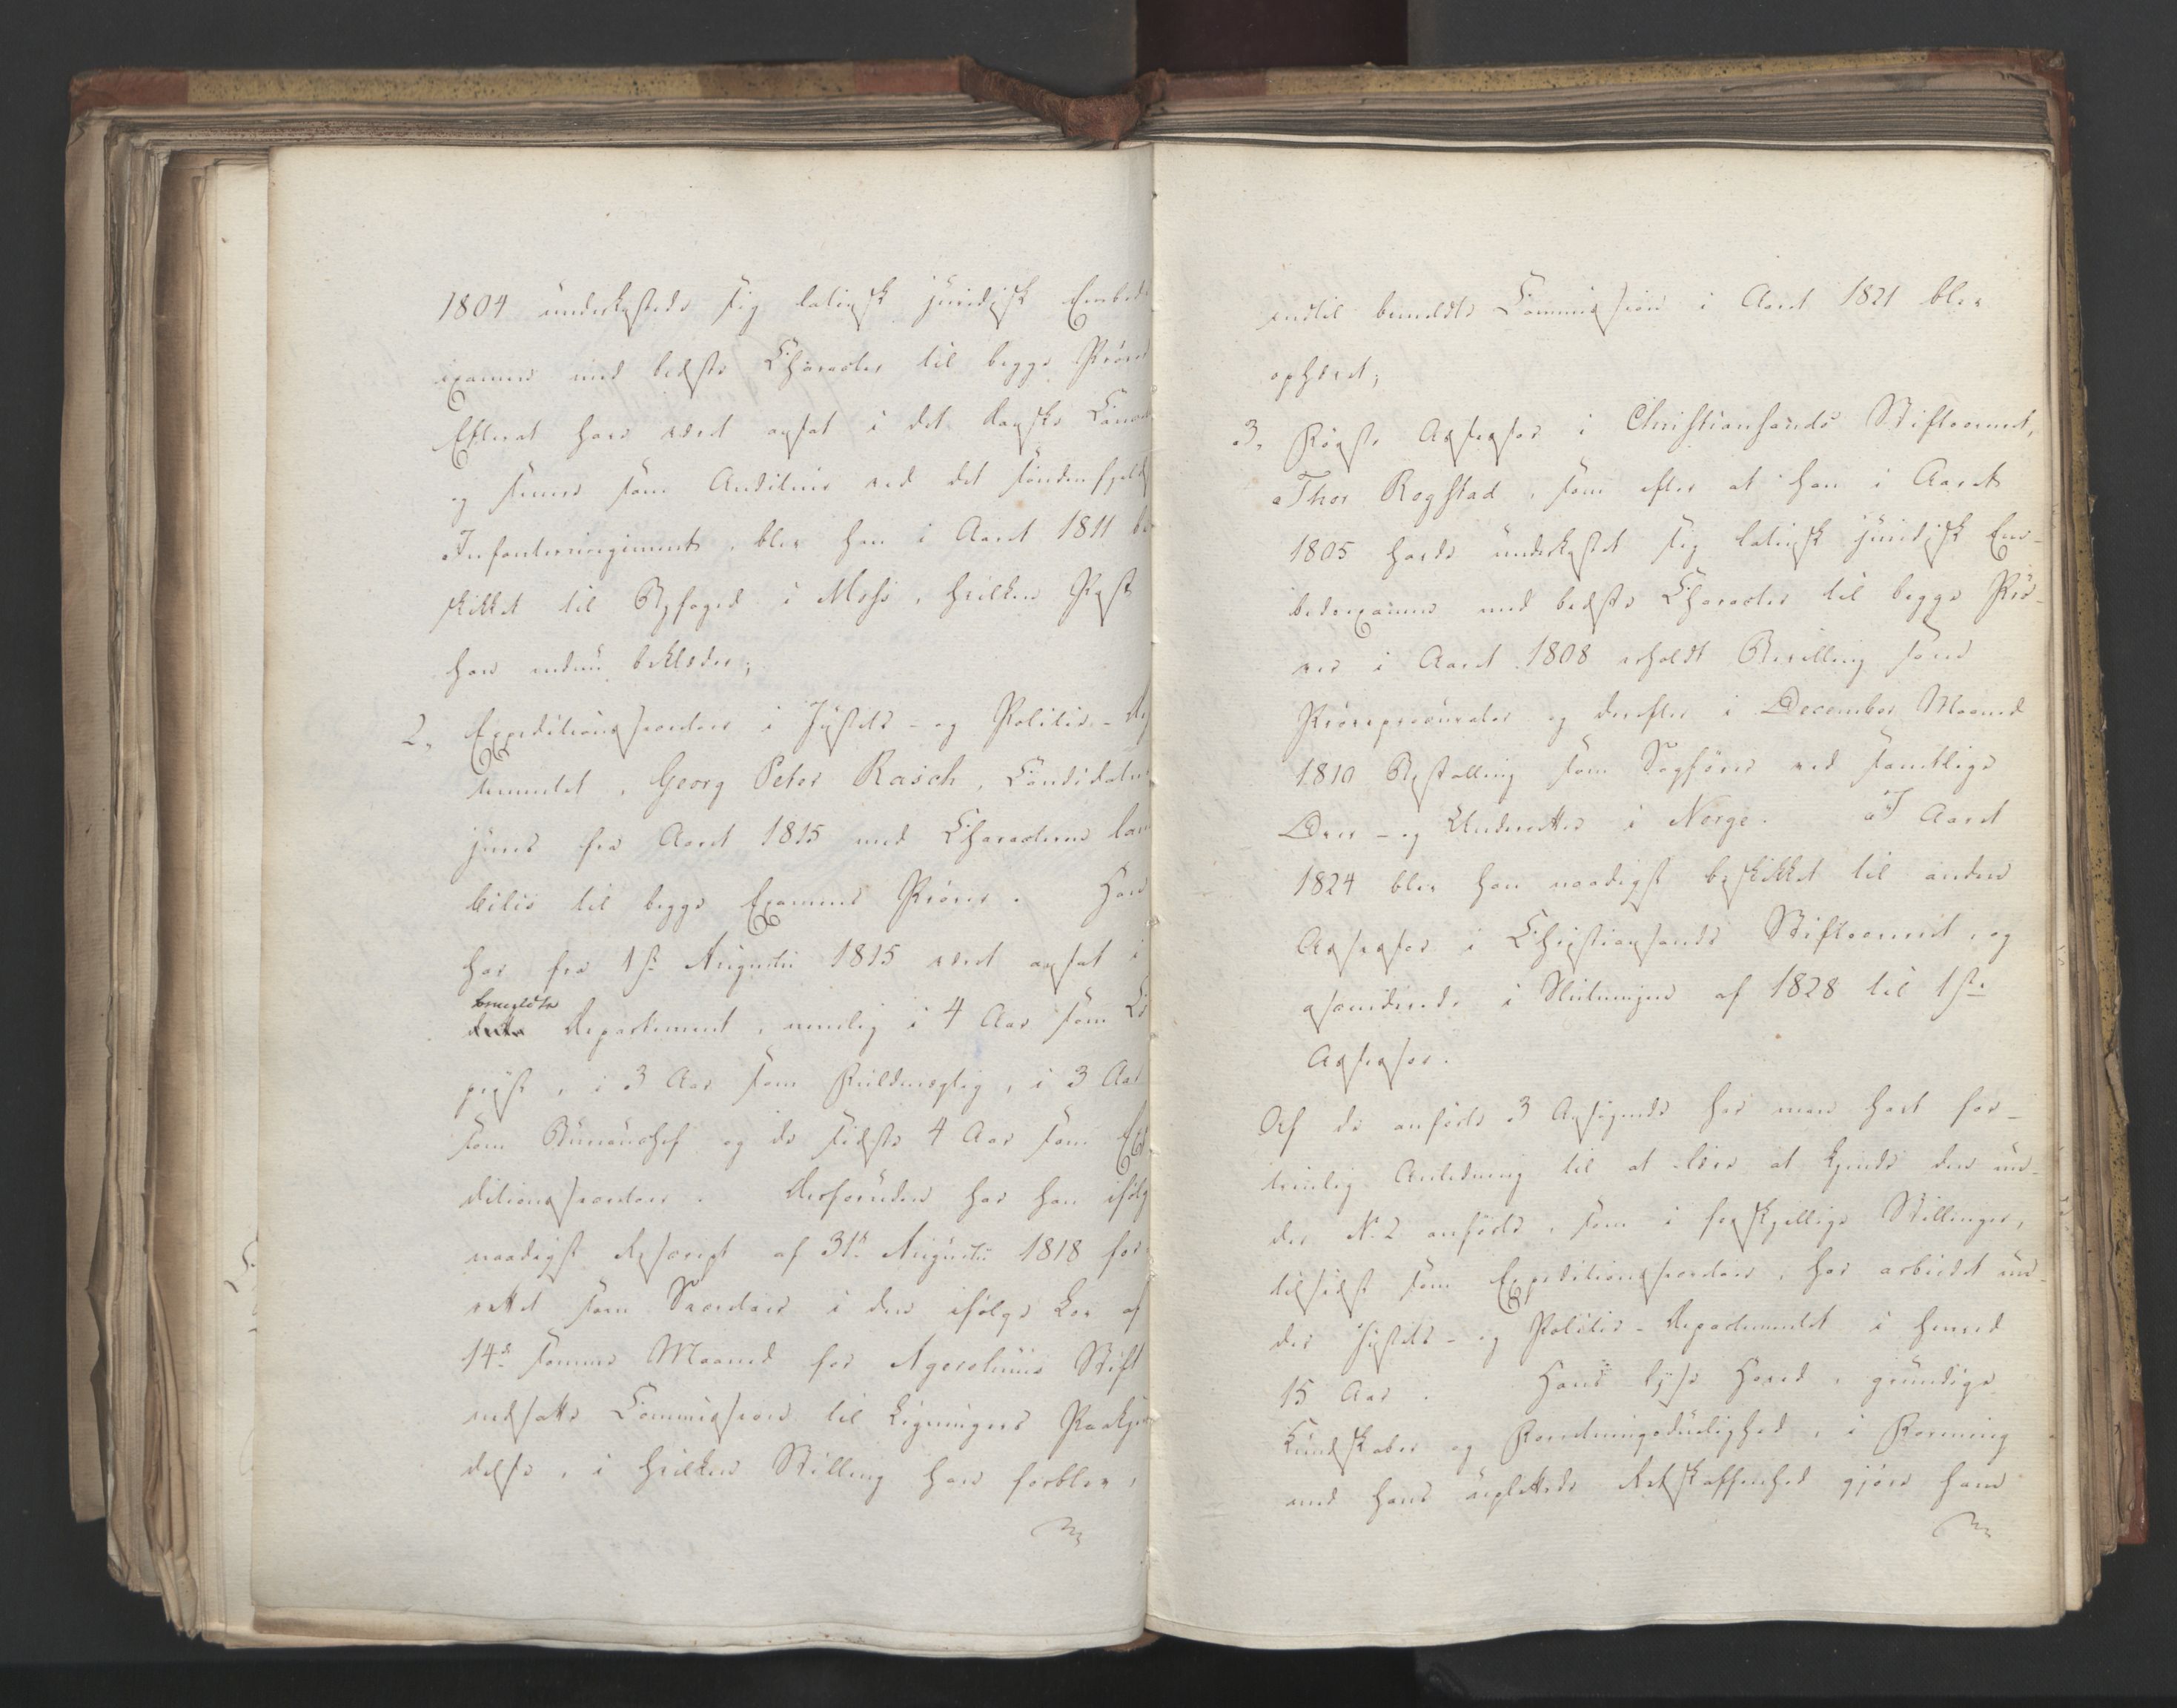 1804 underkastede sig latinsk juridisk Embeds
examen med bedste Character til begge Prøver
Efterat have været ansat i det danske Cancell
og senere som Auditeur ved det søndenfjeldsk
Infanterieregiment, blev han i Aaret 1811 be
skikket til Byfoged i Moss, hvilken Post
han endnu beklæder;
2, Expeditionssecretair i Justits- og Politie-De
tementet, Georg Peter Rasch, Candidatus
juris fra Aaret 1815 med Characteren lau
bilis til begge Examens Prøver. Han
har fra 1ste Augusti 1815 været ansat i
bemeldte
dette Departement, nemlig i 4 Aar som Co
piist, i 3 Aar som Fuldmægtig, i 3 Aar
som Bureauchef og de sidste 4 Aar som Expe
ditionssecretair. Desforuden har han ifølge
naadigst Rescript af 31te Augusti 1818 for
rettet som Secretair i den ifølge Lov af
14de samme Maaned for Agershuus Stift
nedsatte Commission til Ligningers Paakjen
delse, i hvilken Stilling han forblev,
indtil bemeldte Commission i Aaret 1821 blev
ophævet;
3, Første Assessor i Christiansands Stiftsoverret,
Thor Rogstad, som efter at han i Aaret
1805 havde underkastet sig latinsk juridisk Em-
bedsexamen med bedste Character til begge Prø-
ver i Aaret 1808 erholdt Bevilling som
Prøveprocurator og derefter i December Maaned
1810 Bestalling som Sagfører ved samtlige
Over- og Underretter i Norge. I Aaret
1824 blev han naadigst beskikket til anden
Assessor i Christiansands Stiftsoverret, og
ascenderede i Slutningen af 1828 til 1ste
Assessor.
Af de anførte 3 Ansøgende har man havt for-
trinlig Anledning til at lære at kjende den un-
der No 2 anførte, som i forskjellige Stillinger,
tilsidst som Expeditionssecretair, har arbeidet un-
der Justits- og Politie-Departementet i henved
15 Aar. Hans lyse Hoved, grundige
Kundskaber og Forretningsdudighed, i Forening
med hans uplettede Retskaffenhed gjøre ham